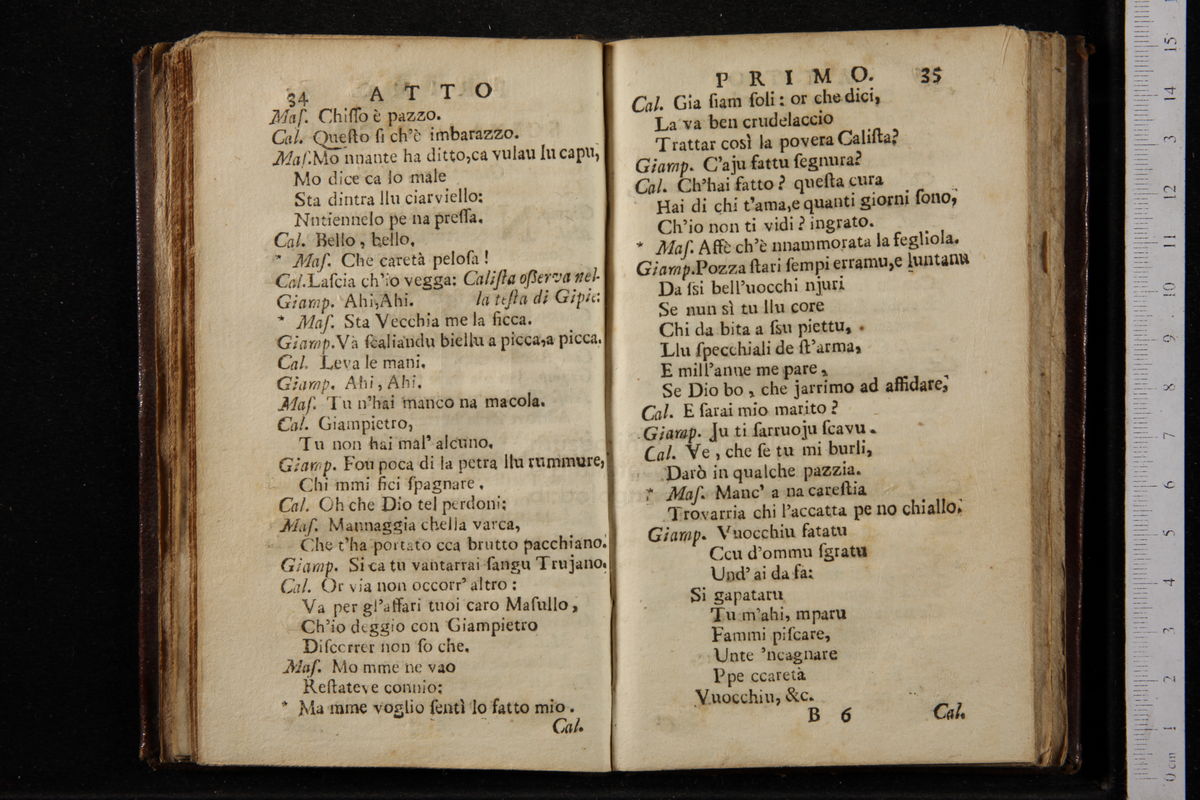 34 ATTO
Maſ. Chiſſo è pazzo.
Cal. Queſto ſi ch'è imbarazzo.
Maſ. Mo nnante ha ditto, ca vulau lu capu,
Mo dice ca lo male
Sta dintra llu ciarviello:
Nntiennelo pe na preſſa.
Cal. Bello, bello.
* Maſ. Che caretà peloſa!
Cal. Laſcia ch'io vegga: Caliſta oſſerva nel-
Giamp. Ahi, Ahi. la teſta di Gipie:
* Maſ. Sta Vecchia me la ficca.
Giamp. Và ſcaliandu biellu a picca, a picca.
Cal. Leva le mani.
Giamp. Ahi, Ahi.
Maſ. Tu n'hai manco na macola.
Cal. Giampietro,
Tu non hai mal' alcuno.
Giamp. Fou poca di la petra llu rummure,
Chi mmi fici ſpagnare.
Cal. Oh che Dio tel perdoni:
Maſ. Mannaggia chella varca,
Che t'ha portato cca brutto pacchiano.
Giamp. Si ca tu vantarrai ſangu Trujano.
Cal. Or via non occorr' altro:
Va per gl'affari tuoi caro Maſullo,
Ch'io deggio con Giampietro
Diſcorrer non ſo che.
Maſ. Mo mme ne vao
Reſtateve connio:
* Ma mme voglio ſentì lo fatto mio.
Cal.
PRIMO. 35
Cal. Gia ſiam ſoli: or che dici,
La va ben crudelaccio
Trattar così la povera Caliſta?
Giamp. C'aju fattu ſegnura?
Cal. Ch'hai fatto? queſta cura
Hai di chi t'ama, e quanti giorni ſono,
Ch'io non ti vidi? ingrato.
* Maſ. Affè ch'è nnammorata la fegliola.
Giamp. Pozza ſtari ſempi erramu, e luntanu
Da ſsi bell'uocchi njuri
Se nun sì tu llu core
Chi da bita a ſsu piettu,
Llu ſpecchiali de ſt'arma,
E mill'anne me pare,
Se Dio bo, che jarrimo ad affidare,
Cal. E ſarai mio marito?
Giamp. Ju ti ſarruoju ſcavu.
Cal. Ve, che ſe tu mi burli,
Darò in qualche pazzia.
* Maſ. Manc' a na careſtia
Trovarria chi l'accatta pe no chiallo.
Giamp. Vuocchiu fatatu
Ccu d'ommu ſgratu
Und' ai da fa:
Si gapataru
Tu m'ahi, mparu
Fammi piſcare,
Unte 'ncagnare
Ppe ccaretà
Vuocchiu, &c.
B 6 Cal.